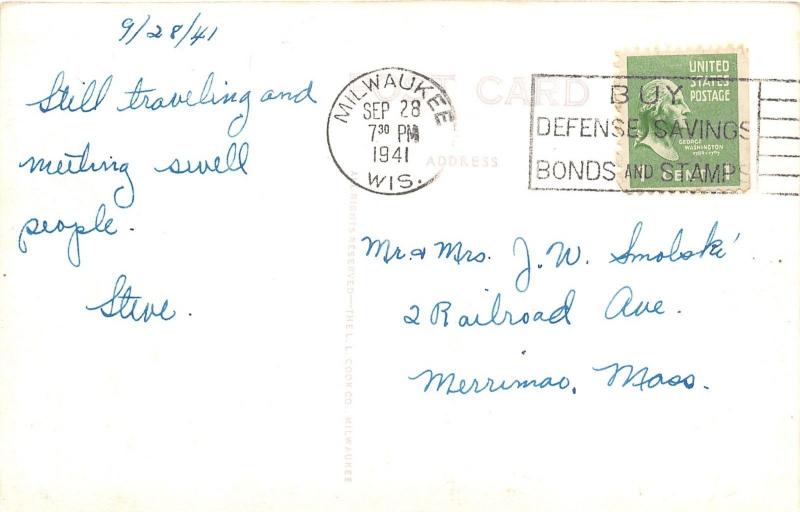 9/28/41
Still traveling and
meeting swell
people.
Steve.
POST CARD
ADDRESS
MILWAUKEE
SEP 28
7 30 PM
1941
WIS.
BUY
DEFENSE SAVINGS
BONDS AND STAMPS
UNITED
STATES
POSTAGE
GEORGE
WASHINGTON
1 CENT 1
Mr. & Mrs. J. W. Smolski
2 Railroad Ave.
Merrimac, Mass.
ALL RIGHTS RESERVED—THE L. L. COOK CO. MILWAUKEE